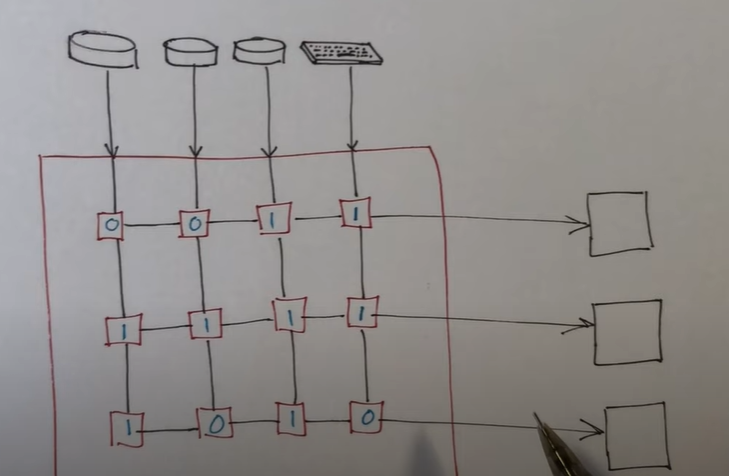 0 0 1 1
1 1 1 1
1 0 1 0